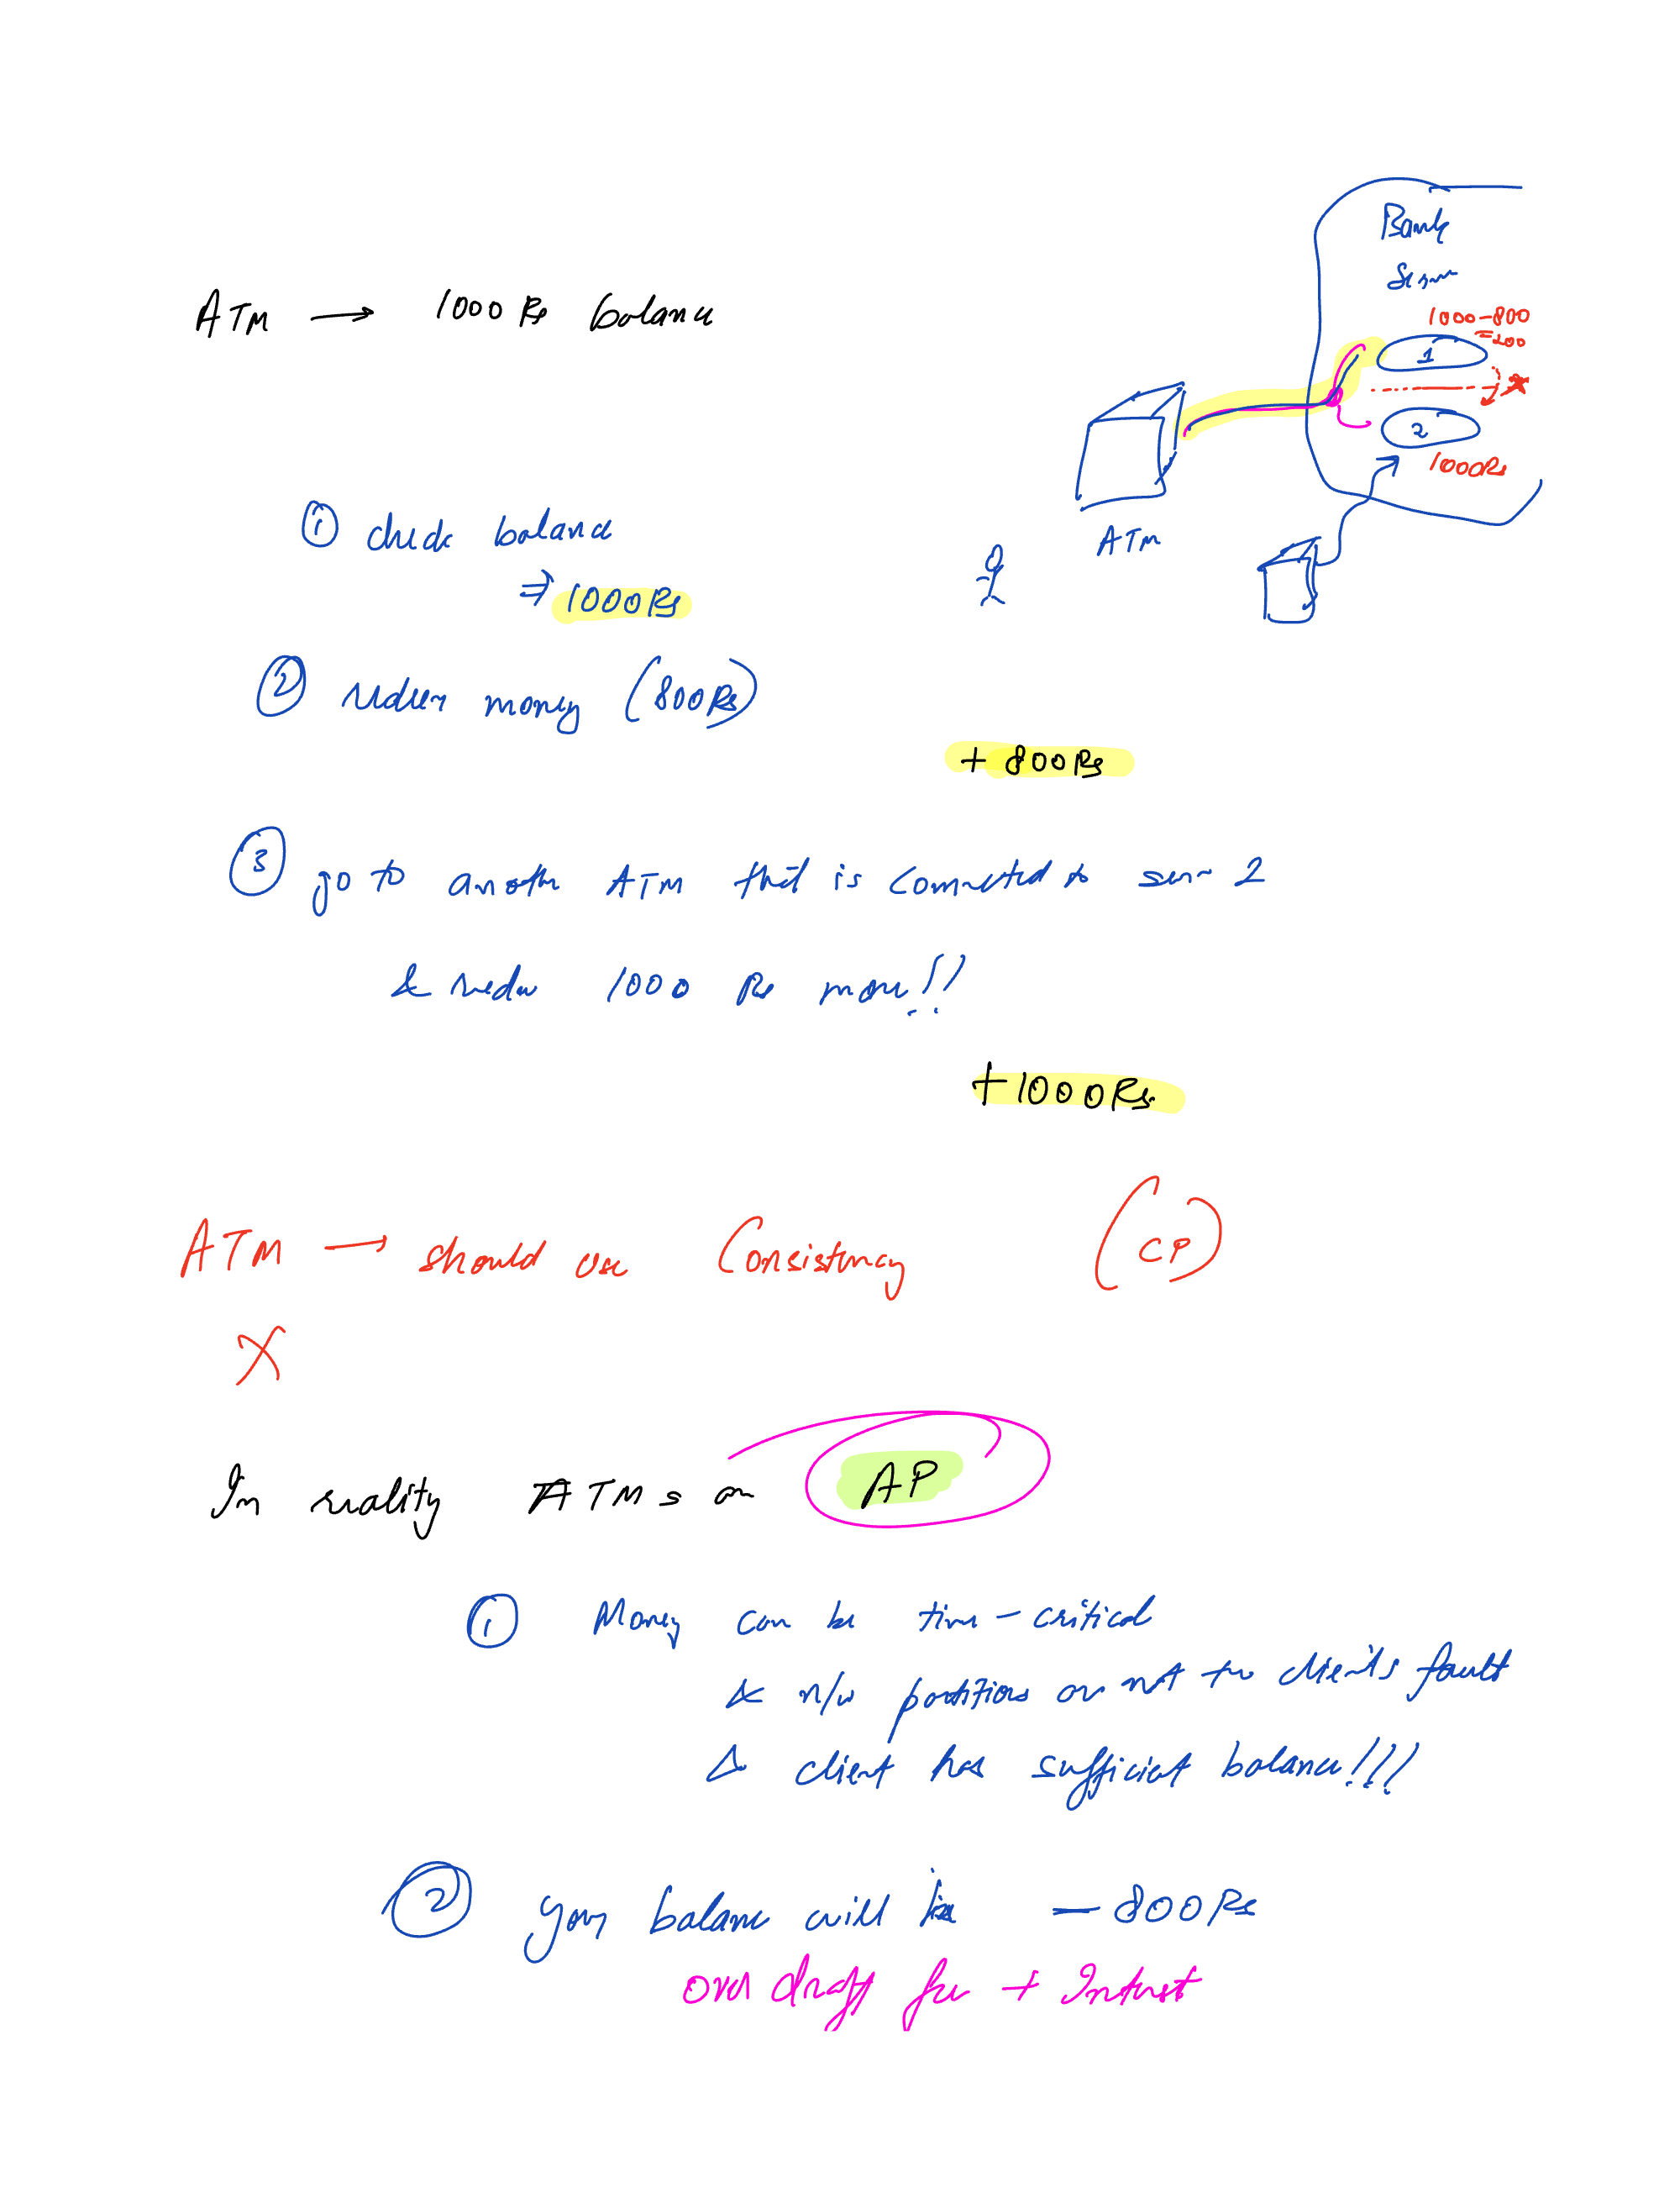 Bank
Server
ATM → 1000 Rs balance
1000-800
=200
1
2
1000Rs
ATM
① check balance
⇒ 1000Rs
② redeem money (800Rs)
+ 800Rs
③ go to another ATM that is connected to server 2
& redeem 1000 Rs more!!
+1000Rs
ATM → should use Consistency (CP)
X
In reality ATMs are AP
① Money can be time-critical
& n/w partitions are not the client's fault
& client has sufficient balance!!!
② your balance will be -800Rs
overdraft fee + Interest